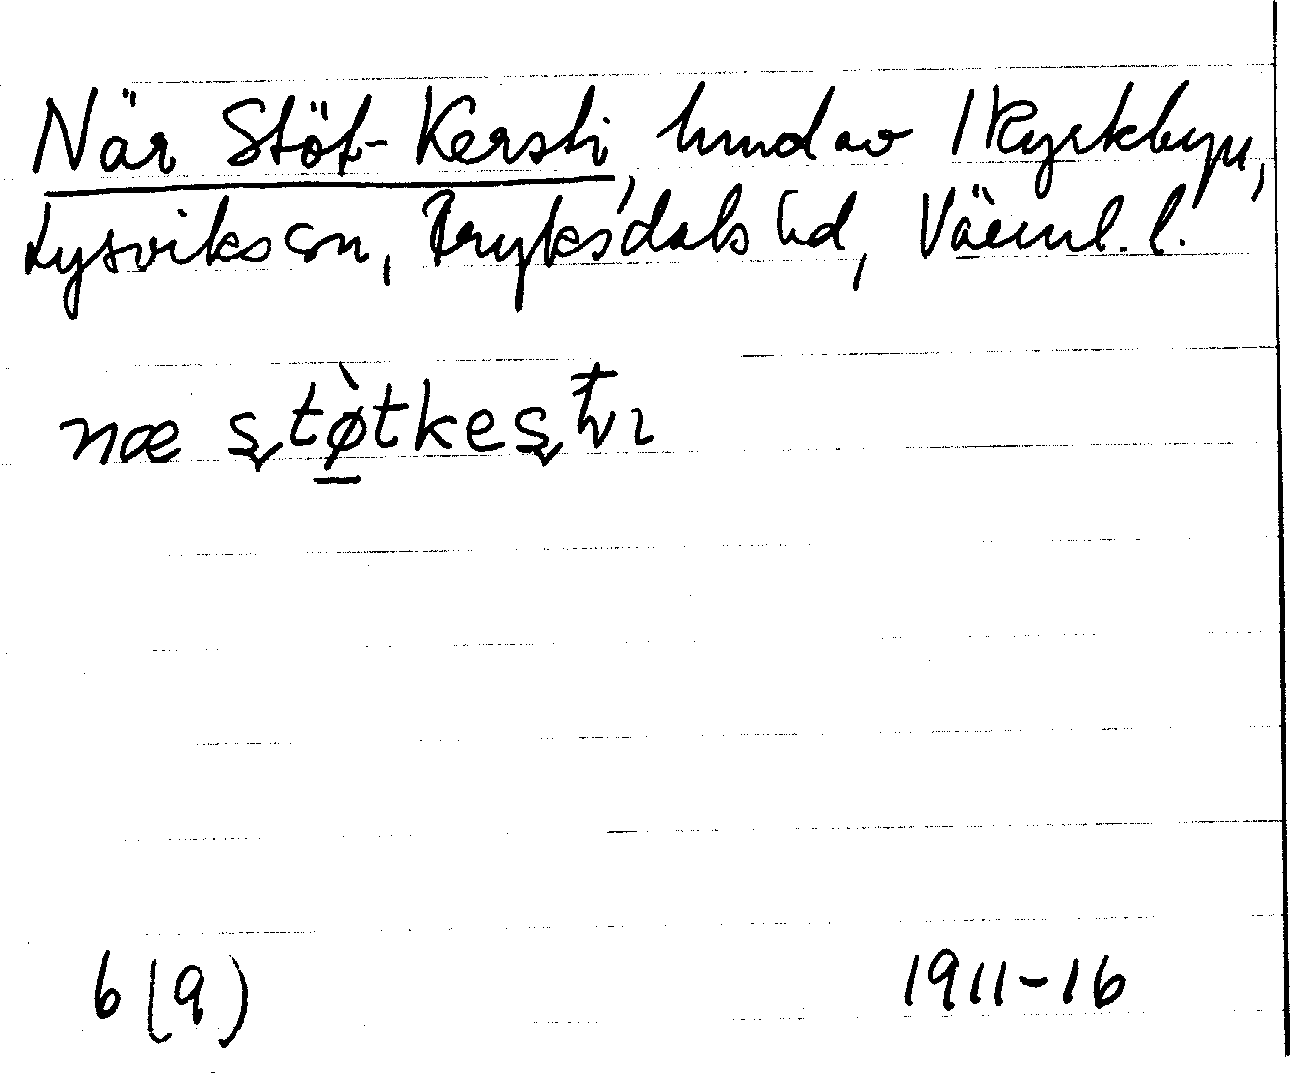 När Stöt-Kersti, hmd av 1 Kyrkbyn,
Lysviks sn, Fryksdals hd, Värml. l.
næ ʂtø̀tkeʂʈɩ
6(9) 1911-16